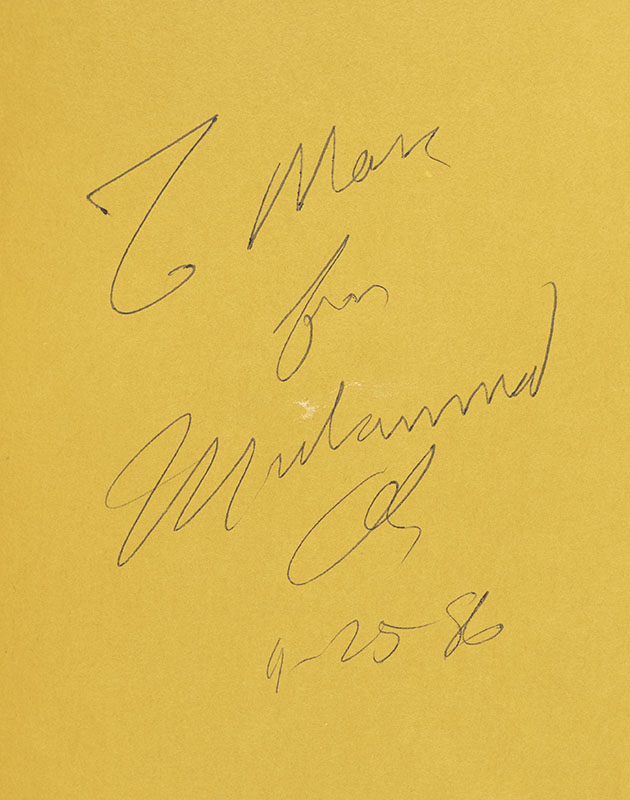 To Mark
from
Muhammad
Ali
9-25-86